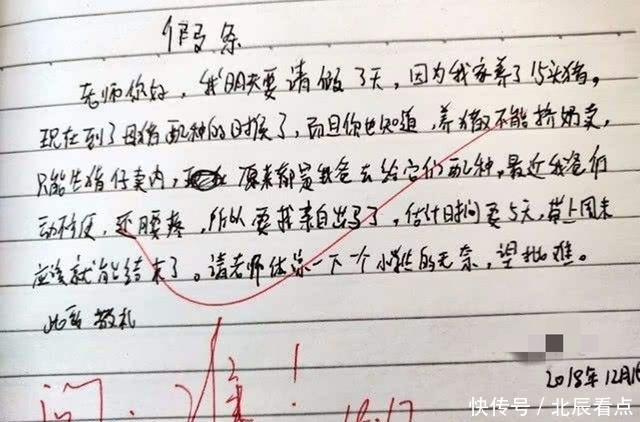 假条
老师你好,我明天要请假3天,因为我家养了15头猪。
现在到了母猪配种的时候了,而且你也知道,养猪又不能挤奶卖,
只能生猪仔卖肉,原来都是我爸去给它们配种,最近我爸行
动不便,还腰疼,所以要我亲自出马了,估计时间要5天,带上周末
应该就能结束了。请老师体谅一下一个小弟的无奈,望批准。
此致 敬礼
2018年12月16
准!
12.17
快传号/北辰看点